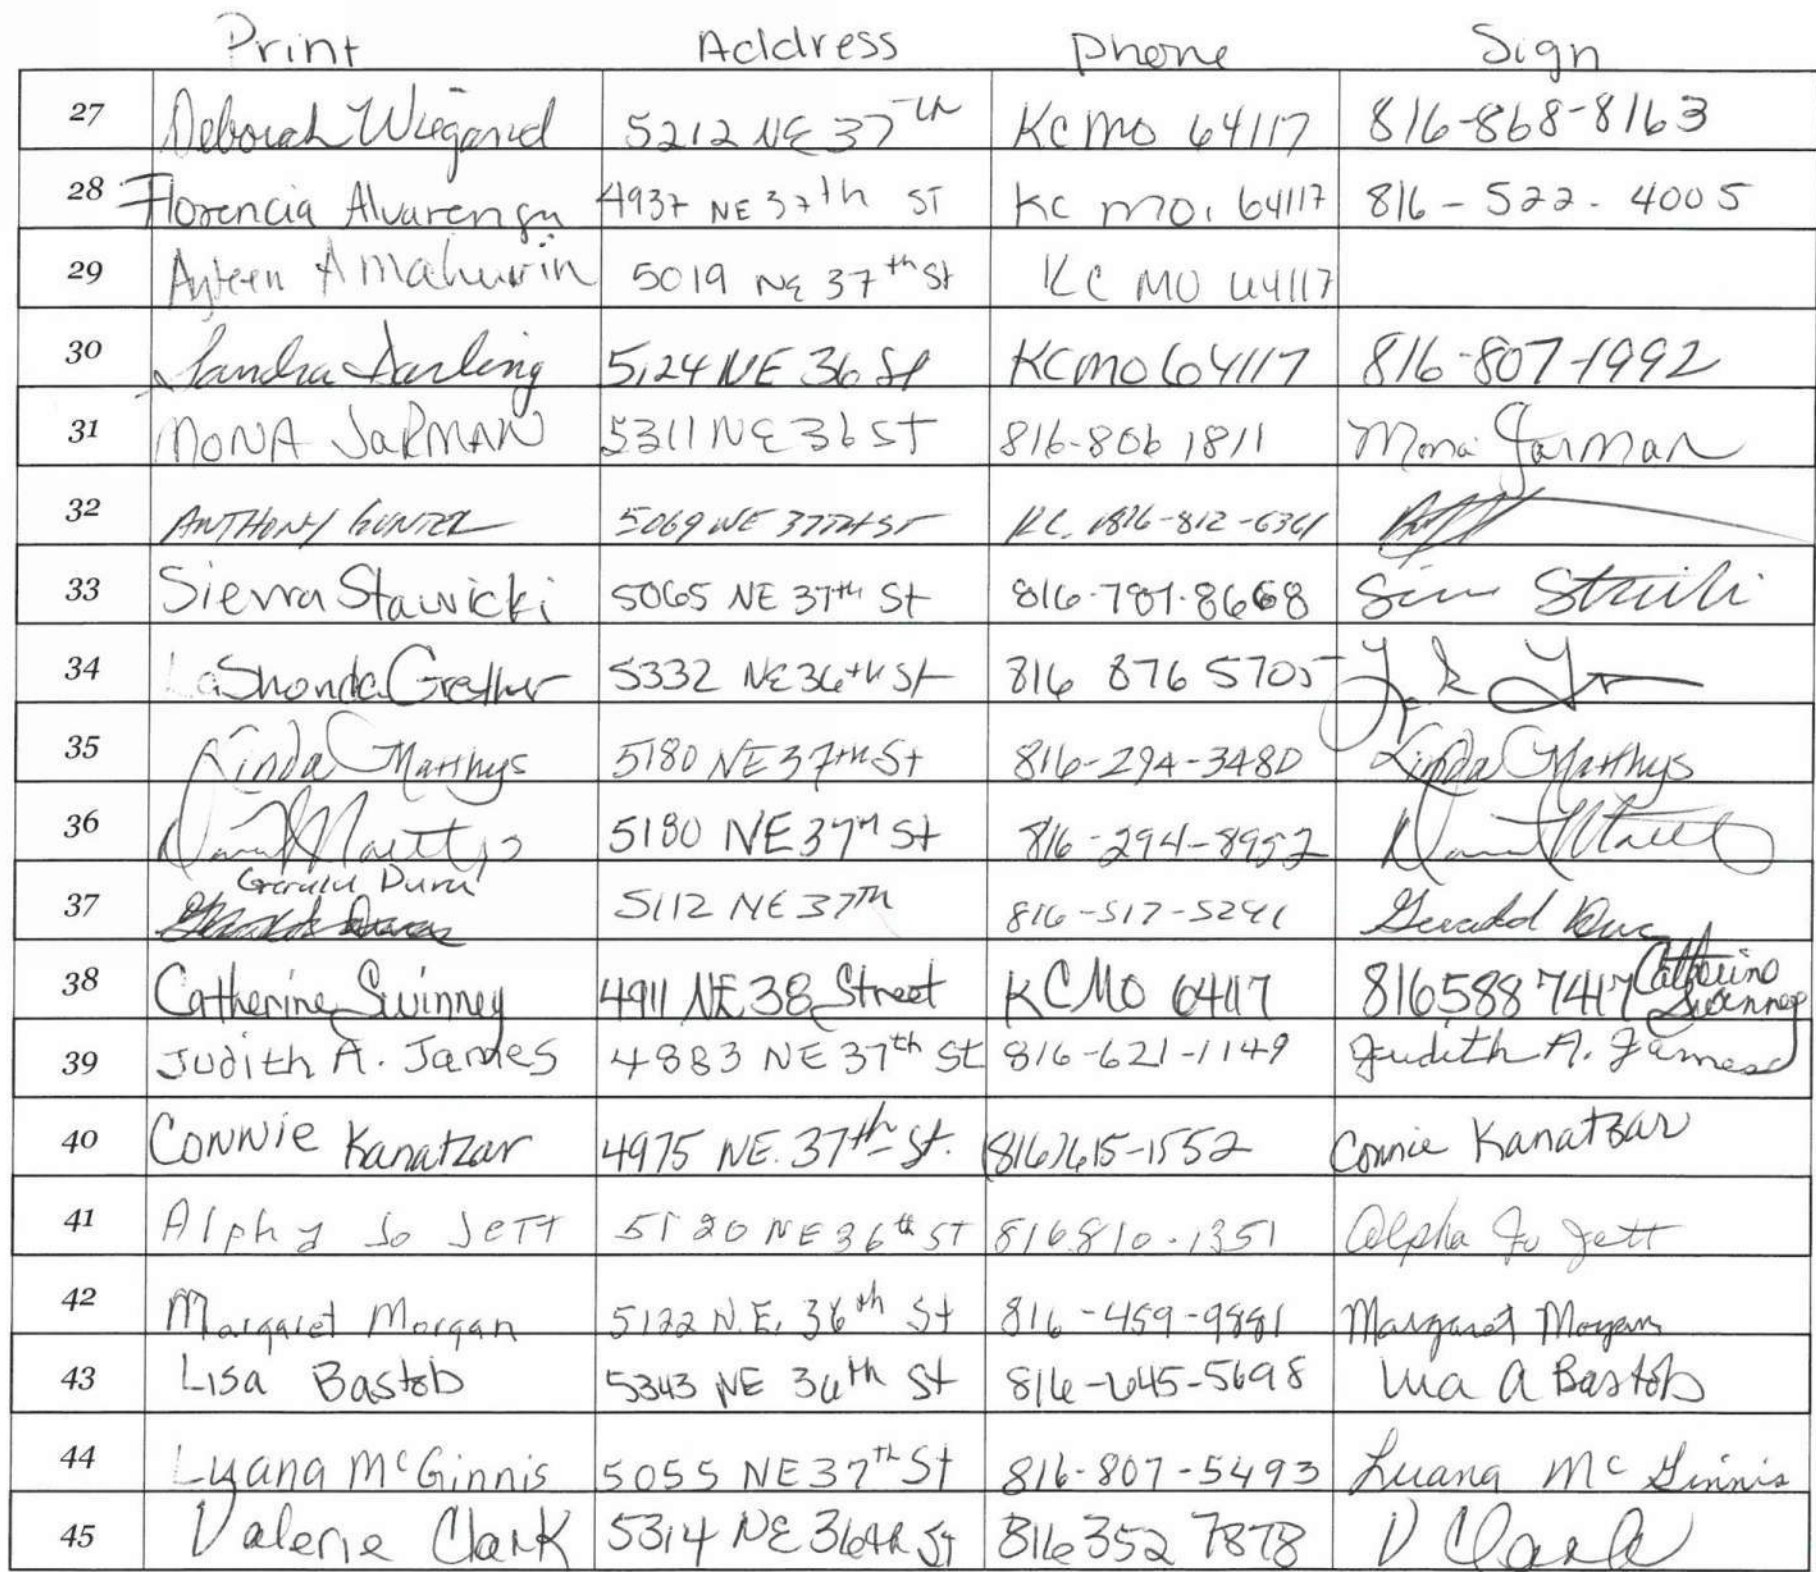 Print Address Phone Sign
27 Deborah Wiegand 5212 NE 37th KCMO 64117 816-868-8163
28 Florencia Alvarenga 4937 NE 37th ST KC MO. 64117 816-522-4005
29 Ayteen A Mahurin 5019 NE 37th St KC MO 64117
30 Sandra Darling 5124 NE 36 St KCMO 64117 816-807-1992
31 MONA JARMAN 5311 NE 36 ST 816-806 1811 Mona Jarman
32 ANTHONY GUNTER 5069 NE 37TH ST KC. 816-812-6361
33 Sierra Stawicki 5065 NE 37th St 816-781-8668
34 LaShonda Grether 5332 NE 36th St 816 876 5705
35 Linda Matthys 5180 NE 37th St 816-294-3480 Linda Matthys
36 5180 NE 37th St 816-294-8952
37 Gerald 5112 NE 37th 816-517-5291 Gerald
38 Catherine Swinney 4911 NE 38 Street KCMO 64117 816 588 7417 Catherine Swinney
39 Judith A. James 4883 NE 37th St 816-621-1149 Judith A. James
40 CONNie Kanatzar 4975 NE. 37th St. (816)615-1552 Connie Kanatzar
41 Alpha Jo Jett 5120 NE 36th ST 816 810-1351 Alpha Jo Jett
42 Margaret Morgan 5122 N.E. 36th St 816-459-9881 Margaret Morgan
43 Lisa Bastob 5343 NE 36th St 816-645-5698 Lisa A Bastob
44 Luana McGinnis 5055 NE 37th St 816-807-5493 Luana McGinnis
45 Valerie Clark 5314 NE 36th St 816 352 7878 V Clark